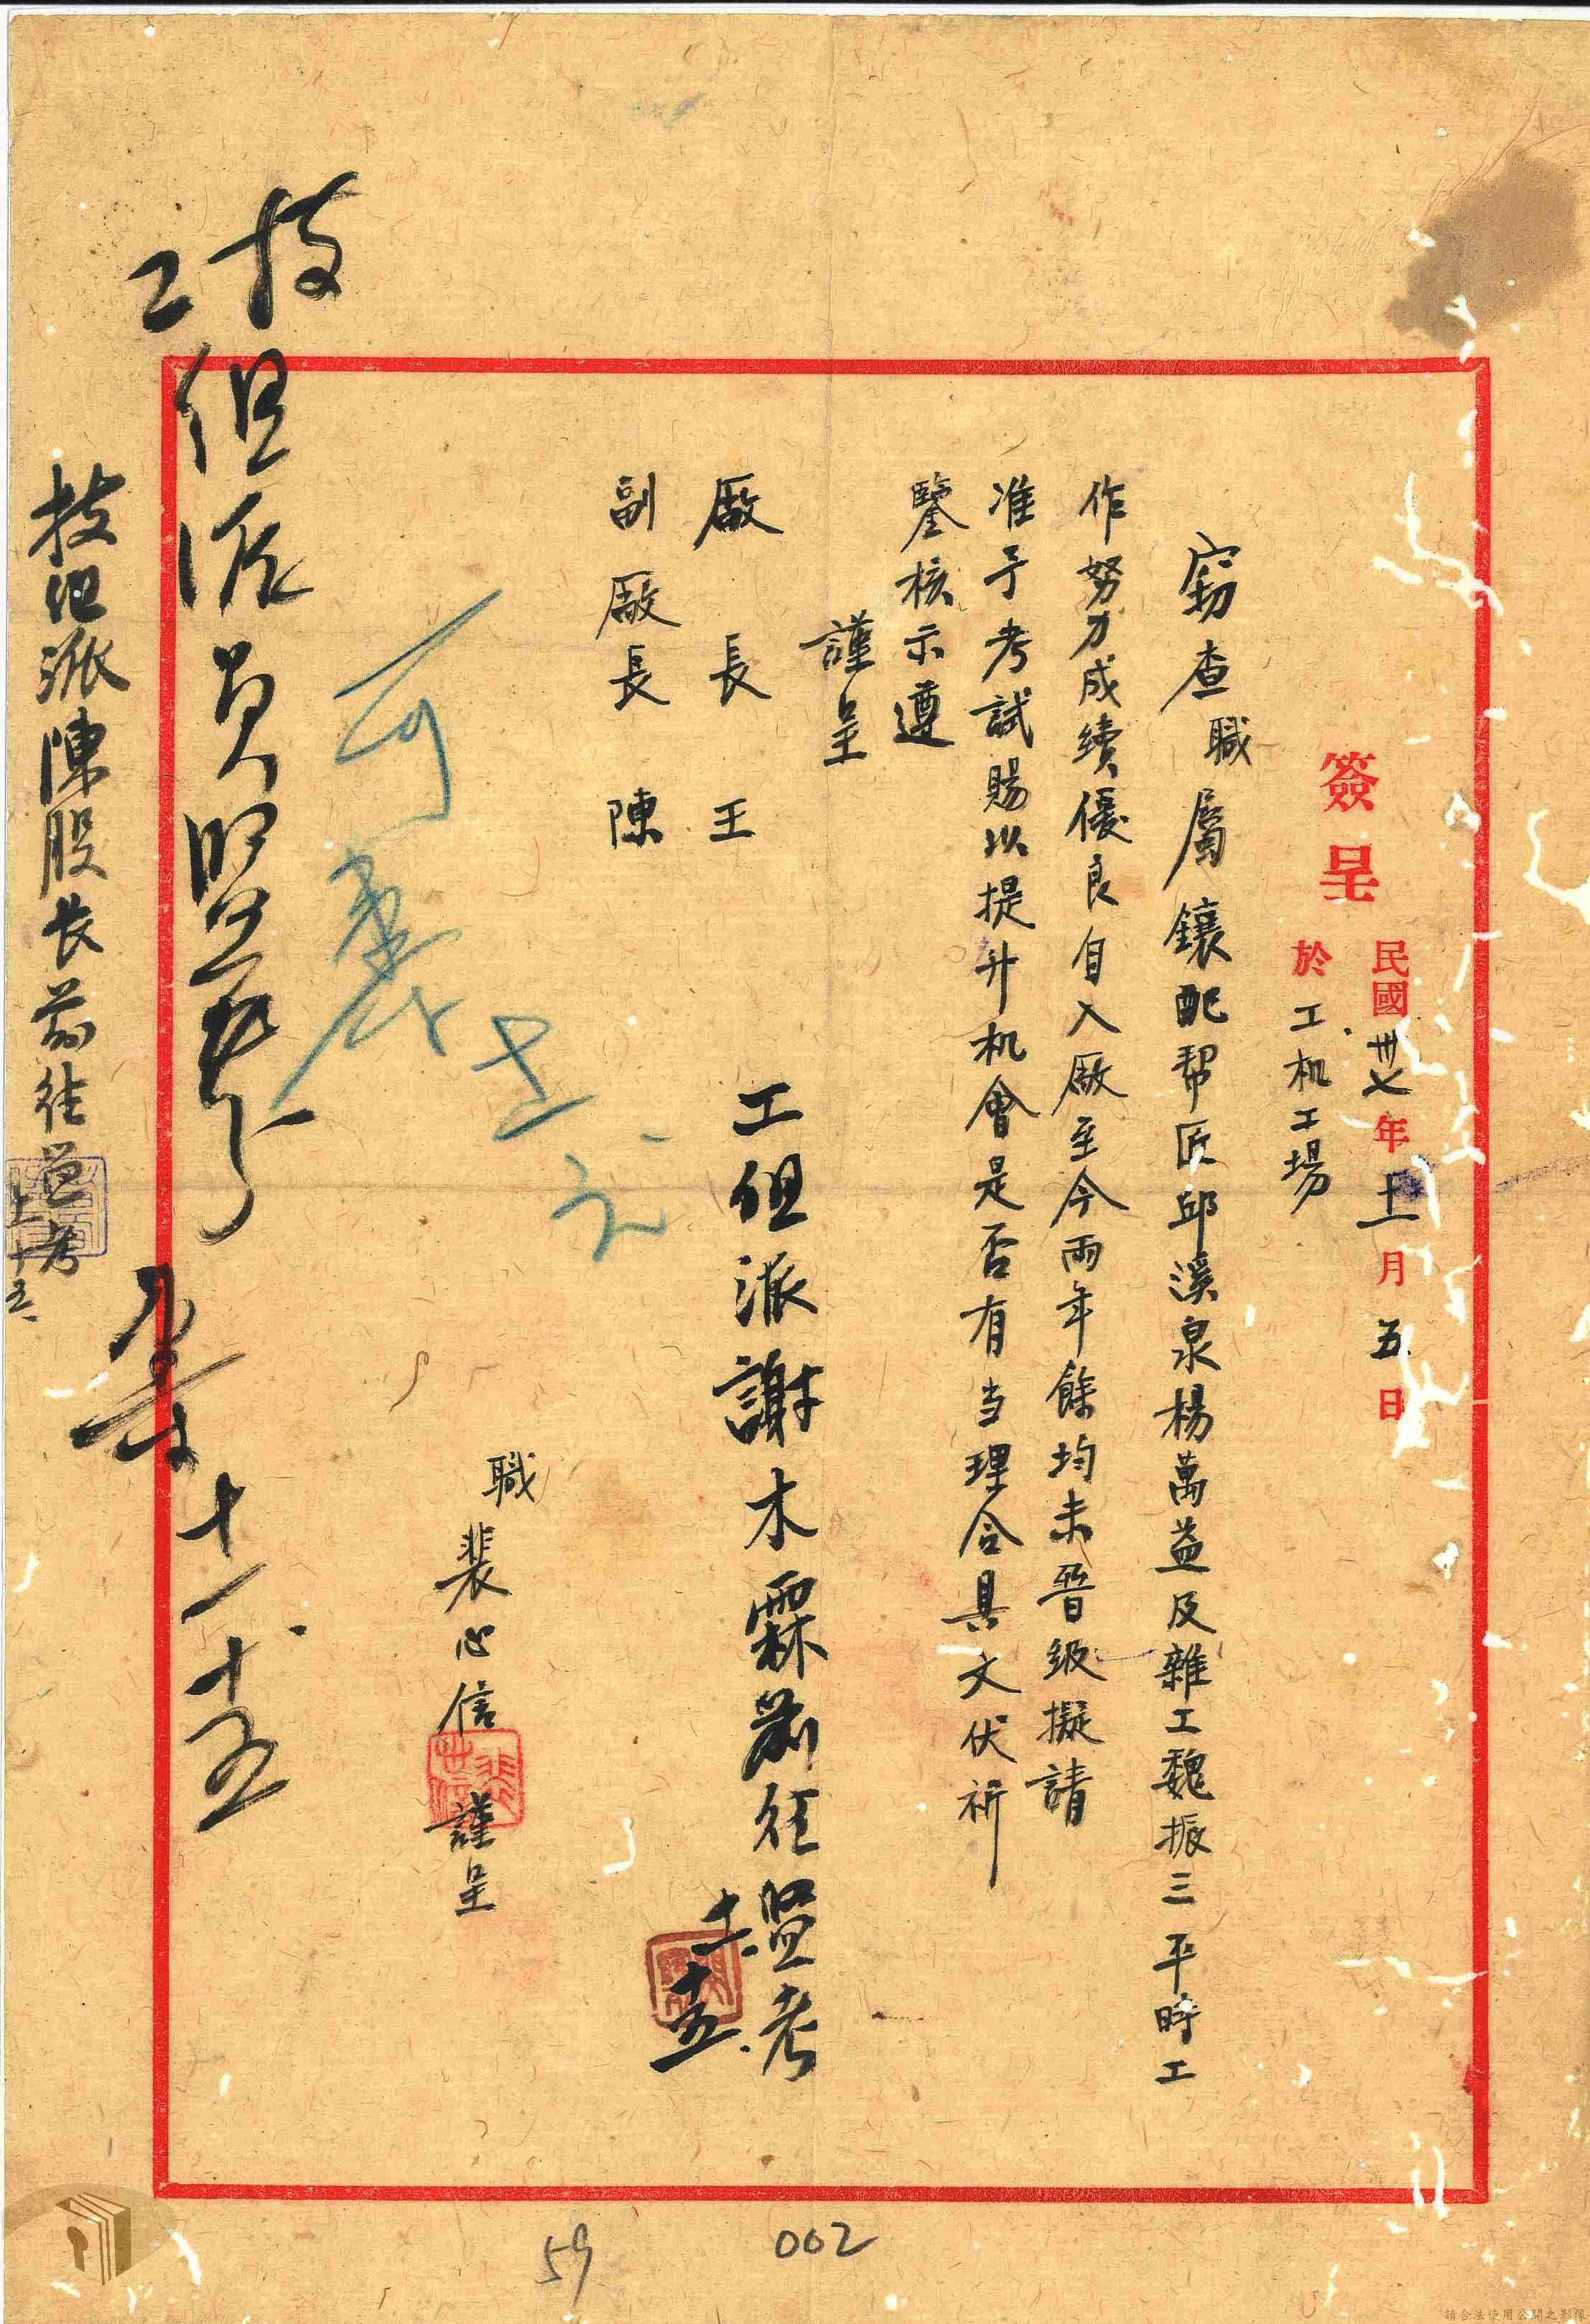 簽呈
民國卅七年十一月五日
於工机工場
竊查職屬鑲配幇匠邱溪泉楊萬益及雜工魏振三平時工
作努力成績優良自入廠至今兩年餘均未晉級擬請
准予考試賜以提升机會是否有当理合具文伏祈
鑒核示遵
謹呈
廠長王
副廠長陳
職裴心信謹呈
工组派謝木霖前往監考
十一.十五.
可
技
工组派員監考
十一.十五
技组派陳股长前往監考
十一十五.
59
002
請合法使用公開之影像